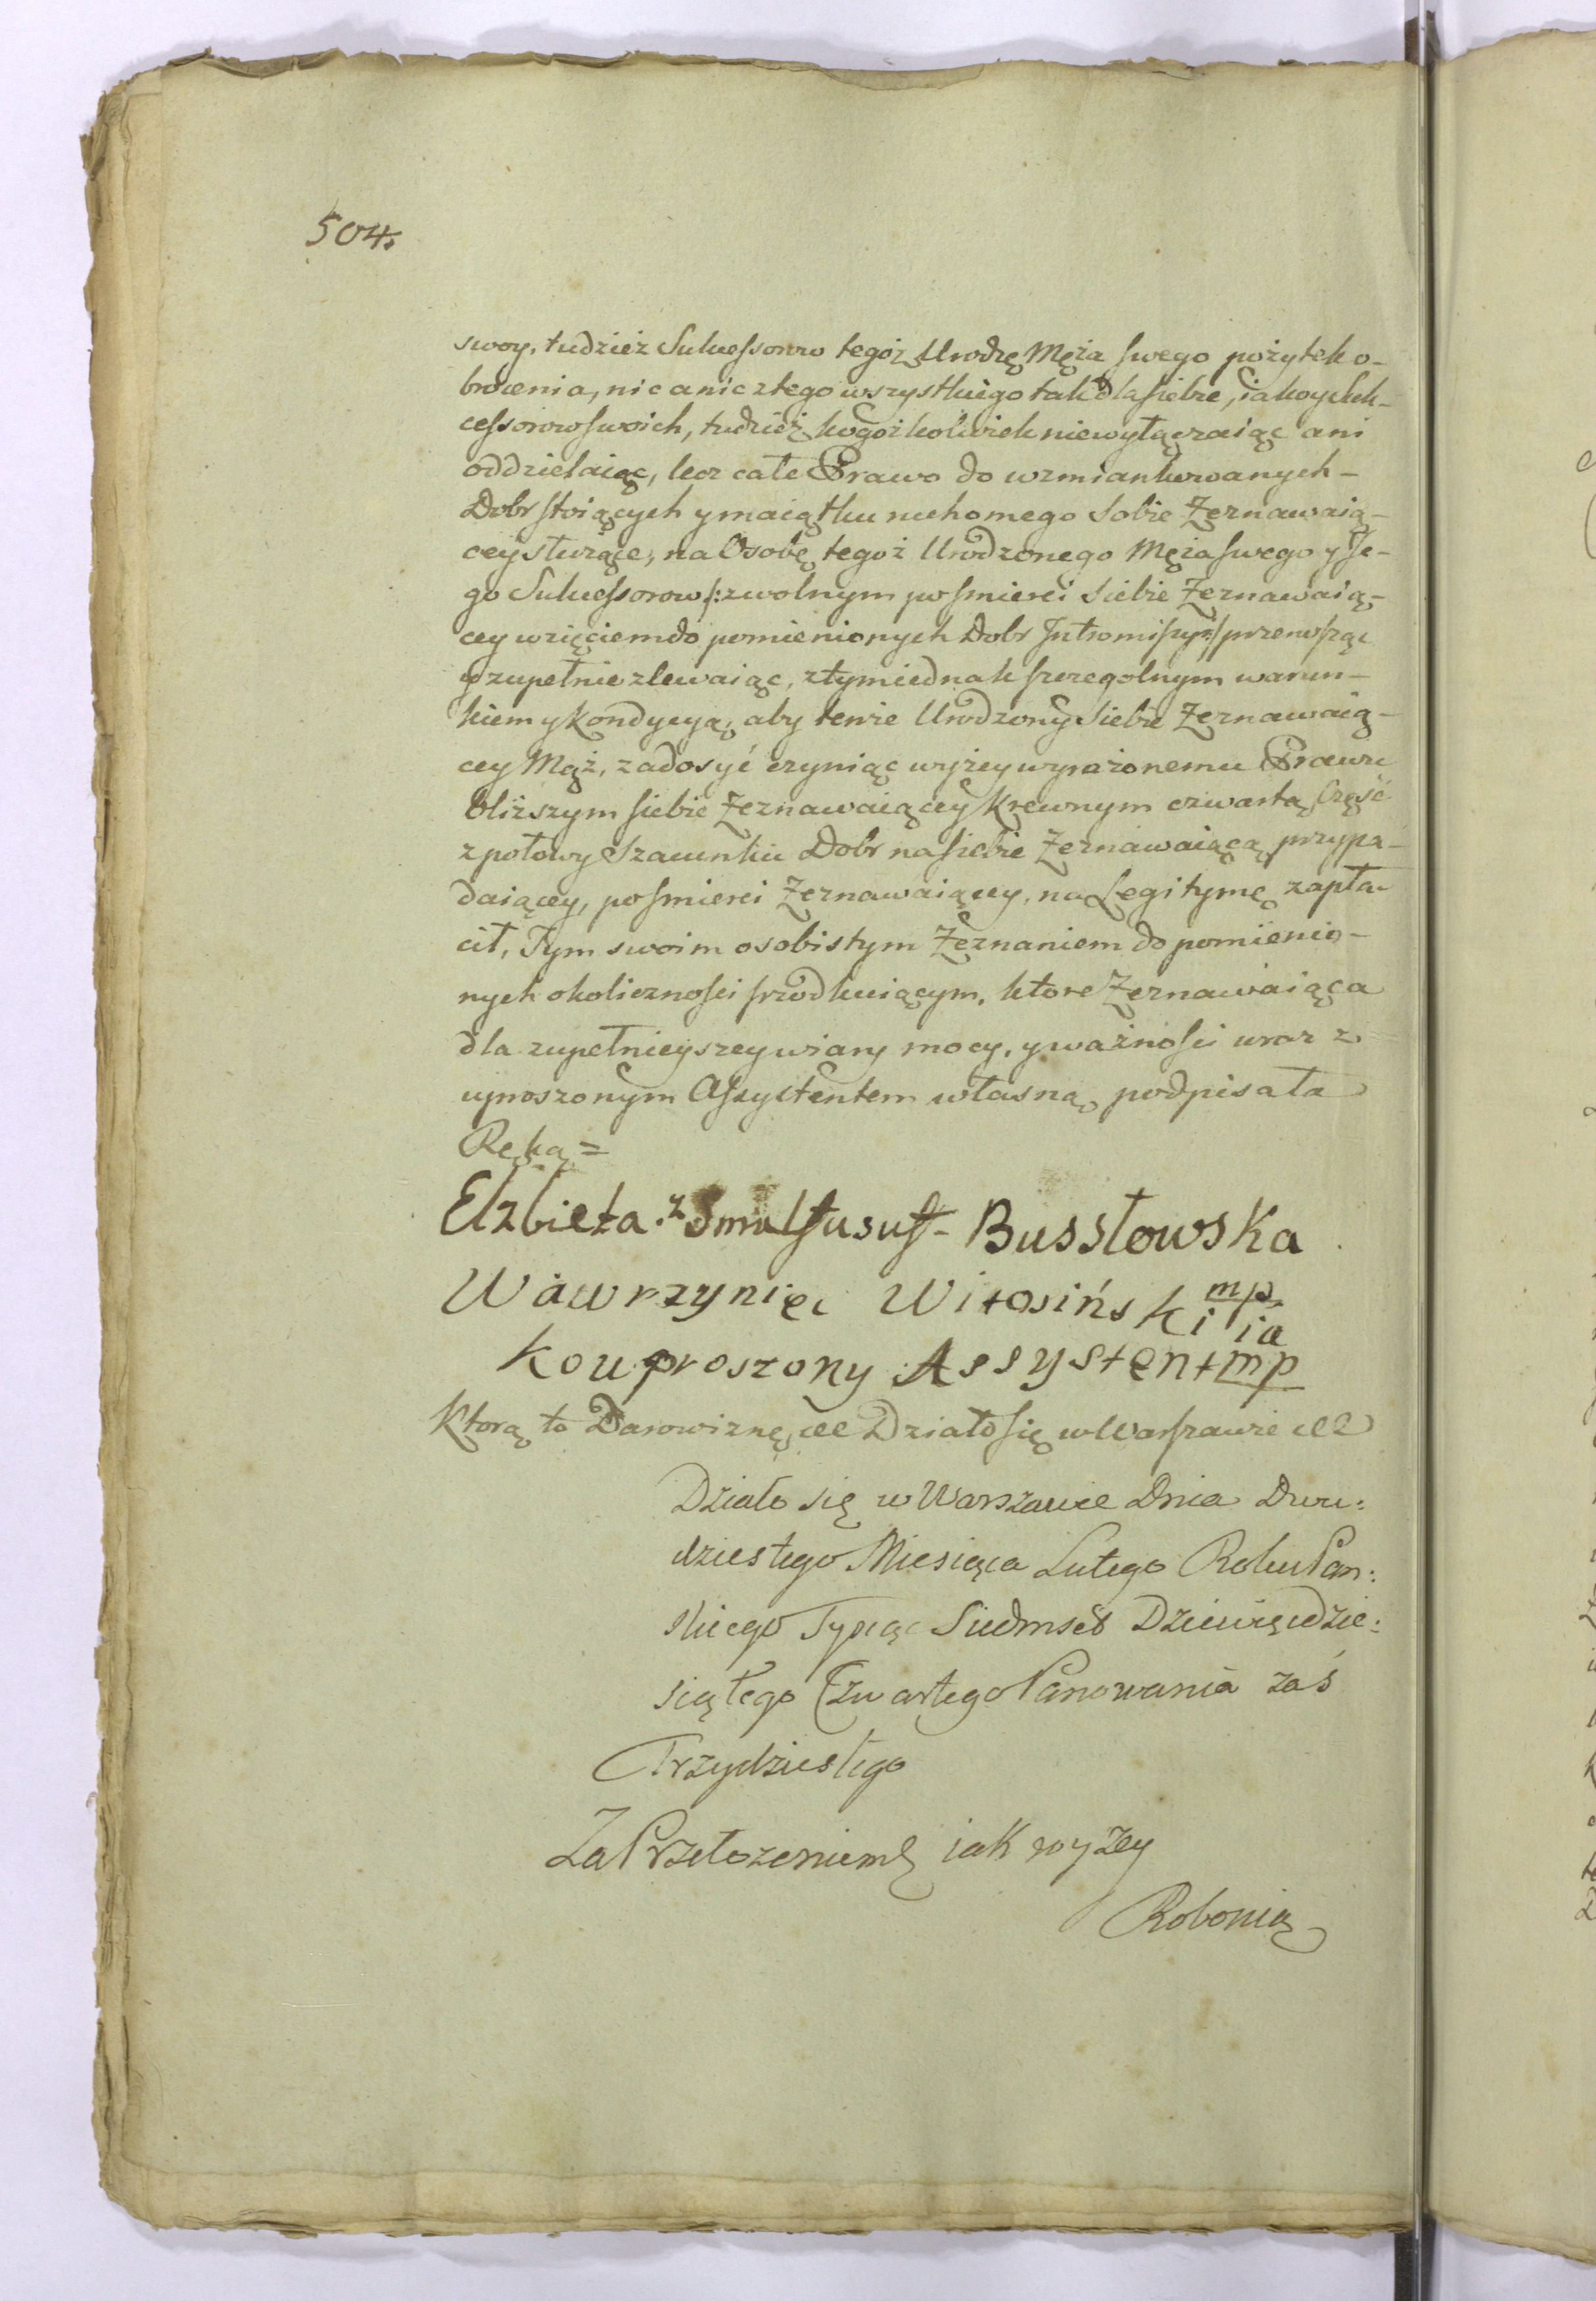 504.
swoy, tudzież Sukcessorow tegoż Urodzę Męża swego pożytek o-
brocenia, nic a nic z tego wszystkiego tak dla siebie, iako y Suk-
cessorow swoich, tudzież kogożkolwiek niewyłączaiąc ani
oddzielaiąc, lecz całe Prawo do wzmiankowanych -
Dobr stoiących y maiątku ruchomego Sobie Zeznawaią-
cey służące, na Osobę tegoż Urodzonego Męża swego y Je-
go Sukcessorow /: z wolnym po smierci siebie Zeznawaią-
cey wzięciem do pomienionych Dobr Intromissyi :/ przenosząc
y zupełnie zlewaiąc, z tym iednak szczegolnym warun-
kiem y Kondycyą, aby tenże Urodzony Siebie Zeznawaią-
cey Mąż, zadosyć czyniąc wyżey wyrażonemu Prawu
bliższym siebie Zeznawaiącey Krewnym czwartą Część
z połowy Szacunku Dobr na siebie Zeznawaiącą przypa-
daiącey, po smierci Zeznawaiącey, na Legitymę zapła-
cił, Tym swoim osobistym Zeznaniem do pomienio-
nych okolicznosci srzodkuiącym, ktore Zeznawaiąca
dla zupełnieyszey wiary mocy, y ważnosci wraz z
uproszonym Assystentem własną podpisała
Ręką =
Elzbieta z Bussłowska
Wawrzyniec Witosiński mp ia
ko uproszony Assystent mp
Ktorą to Darowiznę etc Działo się w Warszawie etc
Działo się w Warszawie Dnia Dwu:
dziestego Miesiąca Lutego Roku Pan:
skiego Tysiąc Siedmset Dziewięćdzie:
siątego Czwartego Panowania zaś
Trzydziestego
Za Przełożeniem iak wyżey